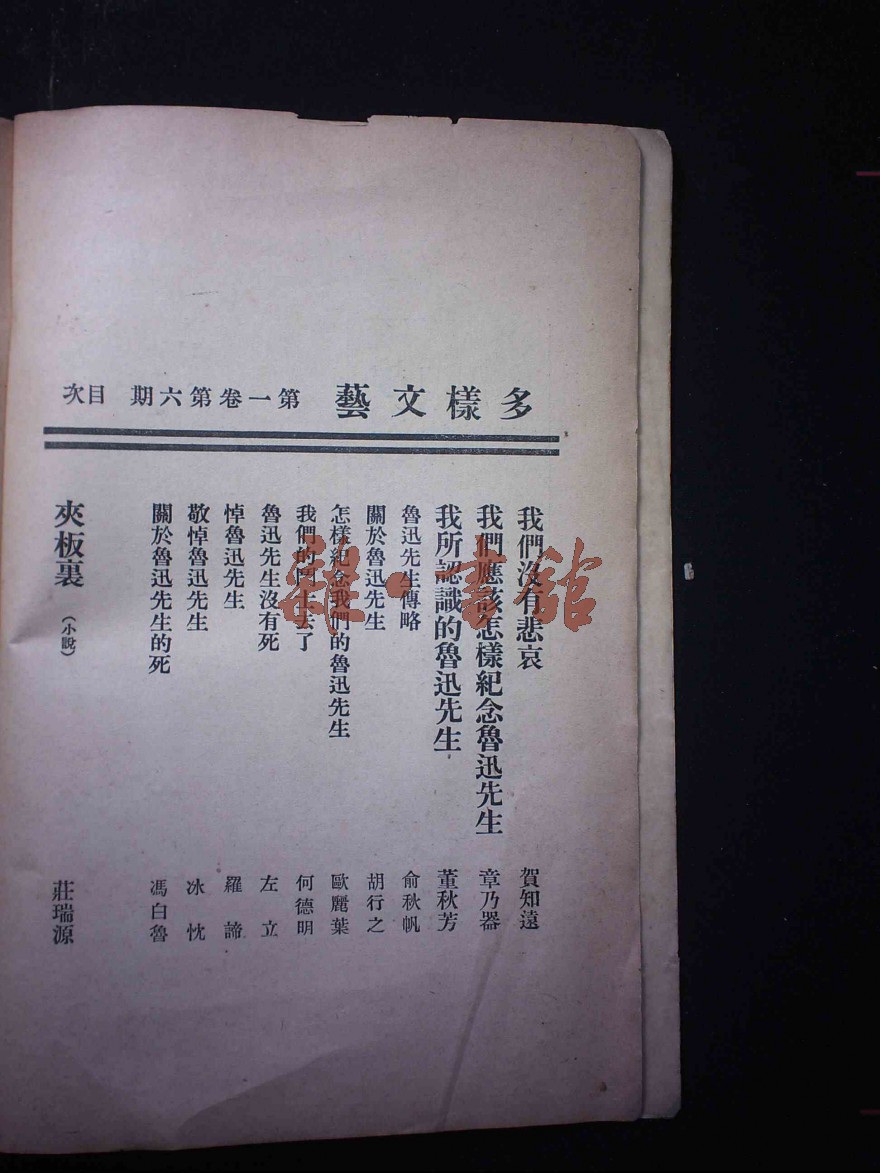 多樣文藝 第一卷第六期 目次
我們沒有悲哀 賀知遠
我們應該怎樣紀念魯迅先生 章乃器
我所認識的魯迅先生 董秋芳
魯迅先生傳略 俞秋帆
關於魯迅先生 胡行之
怎樣紀念我們的魯迅先生 歐麗葉
我們的鬥士去了 何德明
魯迅先生沒有死 左立
悼魯迅先生 羅諦
敬悼魯迅先生 冰忱
關於魯迅先生的死 馮白魯
夾板裏(小說) 莊瑞源
雜·書館